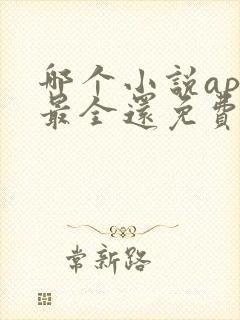 哪个小说ap
最全还免费
常新路